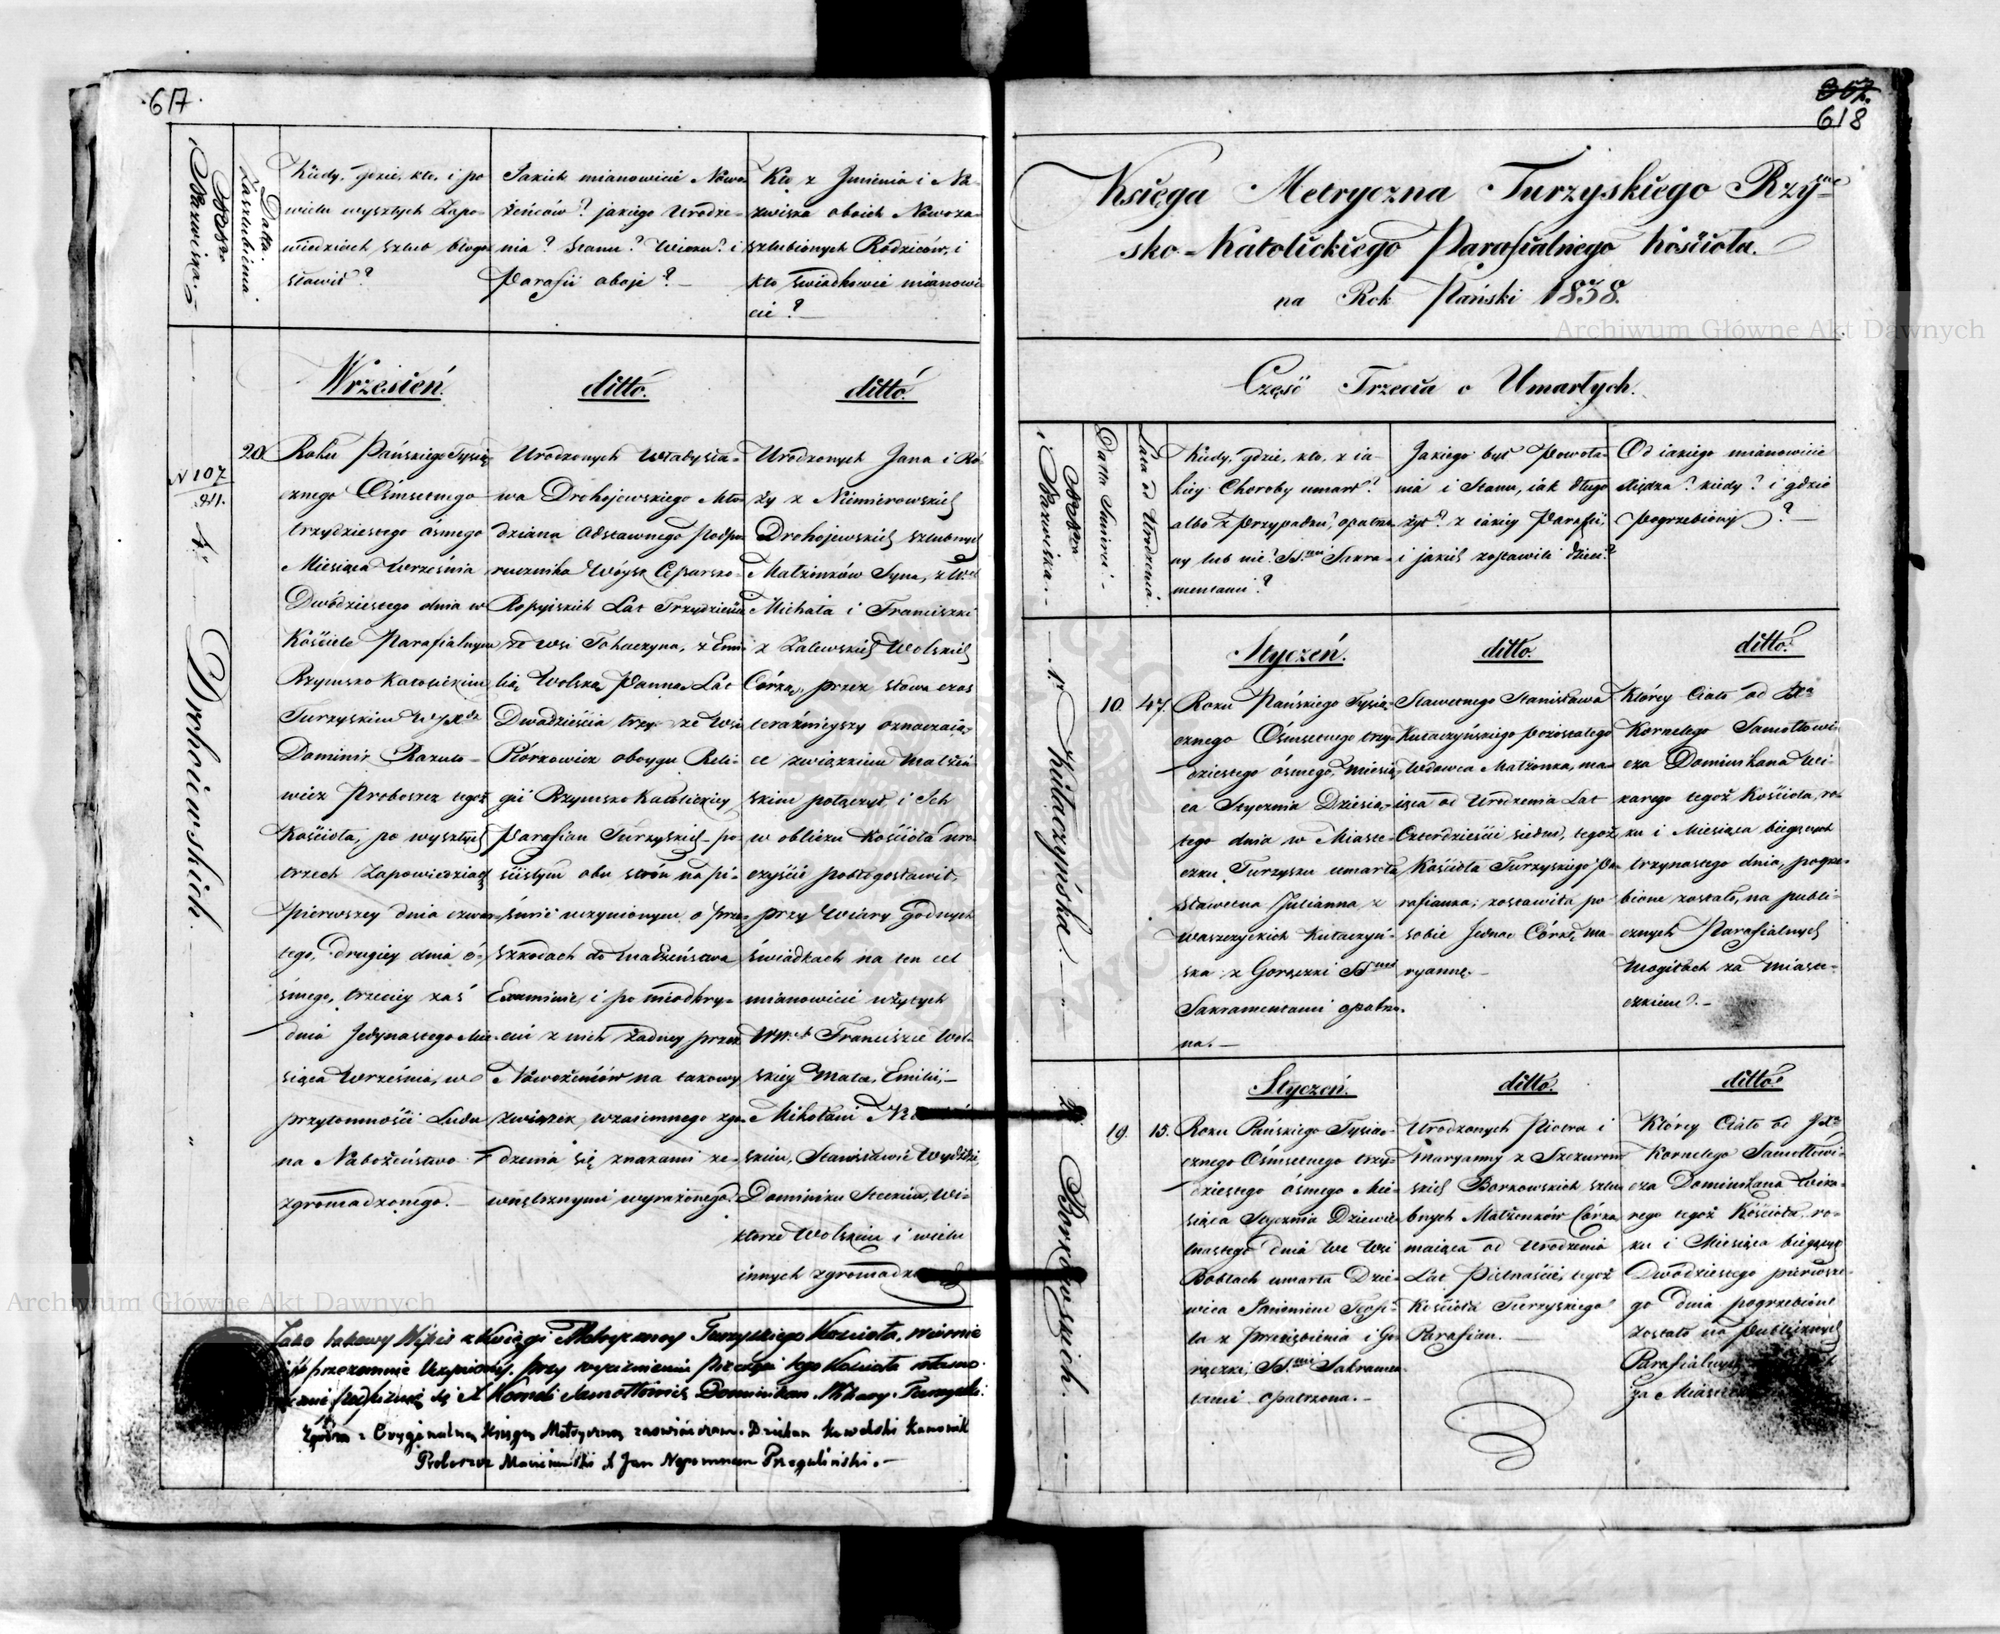 617.
N Aktu i Nazwiska.
Data Zaszlubienia.
Kiedy, gdzie, kto, i po
wielu wyszłych Zapo-
wiedziach szlub błogo
sławił?
Jakich mianowicie Nowo-
żeńców? jakiego Urodze-
nia? Stanu? Wieku? i
Parafii oboje?
Kto z Jmienia i Na-
zwiska oboich Nowoza-
szlubionych Rodziców, i
kto świadkowie mianowi-
cie?
Wrzesień.
dittó.
dittó.
N 107
4.
Drohoiewskich.
20.
Roku Pańskiego Tysią-
cznego Ośmsetnego
trzydziestego ósmego
Miesiąca Września
Dwódziestego dnia w
Kościele Parafialnym
Rzymsko Katolickim
Turzyskim
Dominik
wicz Proboszcz tegoż
Kościoła, po wyszłych
trzech Zapowiedziach
pierwszey dnia czwar-
tego, drugiey dnia ó-
śmego, trzeciey zaś
dnia Jedynastego Mie-
siąca Września, w
przytomności Ludu
na Nabożeństwo
zgromadzonego.
Urodzonych Władysła-
wa Drohojewskiego Mło-
dziana odstawnego Podpo-
rucznika Woysk Cesarsko-
Rossyiskich Lat Trzydzieści
ze wsi Tohaczyna, z Emi-
lią Wolską Panną Lat
Dwadzieścia trzy ze Wsi
Piórkowicz oboyga Reli-
gii Rzymsko Katolickiey
Parafian Turzyskich po
ścisłym obu stron na pi-
śmie uczynionym o prze-
szkodach do małżeństwa
Examinie, i po nieodkry-
ciu z nich żadney przez
Nowożeńców na takowy
związek wzaiemnego zga-
dzenia się znakami ze-
wnętrznymi wyrażonego.
Urodzonych Jana i Ró-
ży z Niemierowskich
Drohojewskich szlubnych
Małżonków Syna, z
Michała i Franciszki
z Zalewskich Wolskich
Córką, przez słowa czas
teraźnieyszy oznaczaią-
ce związkiem małżeń-
skim połączył i Ich
w obliczu Kościoła uro-
czyście pobłogosławił,
przy Wiary godnych
świadkach na ten cel
mianowicie użytych
Franciszce Wol-
skiey Matce Emilii,
Mikołaiu
skim, Stanisławie
Dominiku Wi-
ktorze Wolskim i wielu
innych
Jako takowy Wypis z Xsięgi Metryczney Turzyskiego Kościoła, wiernie
jest przezemnie Uczyniony, przy wyciśnieniu Pieczęci tego Kościoła własno-
ręcznie podpisuię się X Korneli Samotłowicz Dominikan. Wikary Turzyski.
Zgodno z Oryginalną Xsięgą Metryczną zaświadczam. Dziekan Kowelski Kanonik
Proboszcz X Jan Nepomucen
618
Księga Metryczna Turzyskiego Rzym-
sko-Katolickiego Parafialnego Kościoła.
na Rok Pański 1838.
Część Trzecia o Umarłych.
N Aktu i Nazwiska.
Data Śmierci.
Lata od Urodzenia.
Kiedy, gdzie, kto, z ia-
kiey Choroby umarł?
albo z przypadku? opatrzo-
ny lub nie? Sakra-
mentami?
Jakiego był Powoła-
nia i Stanu, iak długo
żył? z iakiey Parafii,
i jakich zostawił dzieci?
Od iakiego mianowicie
Xiędza? kiedy? i gdzie
pogrzebiony?
Styczeń.
ditto.
dittó.
1.
Kułaczyńska.
10.
47.
Roku Pańskiego Tysią-
cznego Ośmsetnego trzy-
dziestego ósmego, miesią-
ca Stycznia Dziesią-
tego dnia w Miaste-
czku Turzysku umarła
Sławetna Julianna z
Kułaczyń-
ska z Gorączki
Sakramentami opatrzo-
na.
Sławetnego Stanisława
Kułaczyńskiego pozostałego
Wdowca Małżonka, ma-
iąca od Urodzenia Lat
Czterdzieści siedm, tegoż
Kościoła Turzyskiego Pa-
rafianka; zostawiła po
sobie Jedną Córkę Ma-
ryannę.
Którey Ciało od
Kornelego Samotłowi-
cza Dominikana Wi-
karego tegoż Kościoła, ro-
ku i Miesiąca bieżących
trzynastego dnia, pogrze-
bione zostało, na publi-
cznych Parafialnych
Mogiłach za Miaste-
czkiem.
Styczeń.
ditto.
ditto.
2.
Borkowskich.
19.
15.
Roku Pańskiego Tysią-
cznego Ośmsetnego trzy-
dziestego ósmego Mie-
siąca Stycznia Dziewię-
tnastego dnia we Wsi
Bobłach umarła Dzie-
wica Imieniem Teofi-
la z Przeziębienia i Go-
rączki, Sakramen-
tami opatrzona.
Urodzonych Piotra i
Maryanny z
Borkowskich szlu-
bnych Małżonków Córka,
maiąca od Urodzenia
Lat Piętnaście, tegoż
Kościoła Turzyskiego
Parafian.
Którey Ciało od
Kornelego Samotłowi-
cza Dominikana Wika-
rego tegoż Kościoła, ro-
ku i Miesiąca bieżących
Dwódziestego pierwsze-
go dnia pogrzebione
zostało na Publicznych
Parafialnych
za
Archiwum Główne Akt Dawnych
Archiwum Główne Akt Dawnych